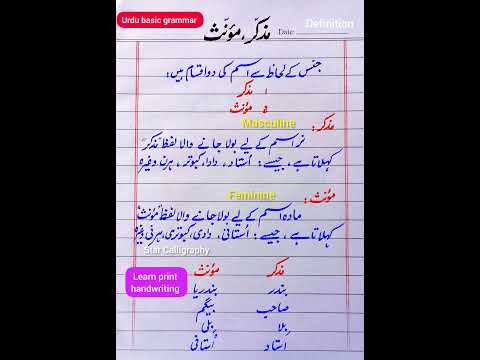 Urdu basic grammar
Definition
مذکّر، مؤنّث
Date:
جنس کے لحاظ سے اسم کی دو اقسام ہیں:
۱ مذکر
۵ مؤنث
Masculine
مذکر:
نر اسم کے لیے بولا جانے والا لفظ "مذکر"
کہلاتا ہے، جیسے: استاد، دادا، کبوتر، ہرن وغیرہ
Feminine
مؤنث:
مادہ اسم کے لیے بولا جانے والا لفظ "مؤنث"
کہلاتا ہے، جیسے: اُستانی، دادی، کبوتری، ہرنی وغیرہ
Star Calligraphy
Learn print
handwriting
مذکر مؤنث
بندر بندریا
صاحب بیگم
بِلا بِلی
استاد اُستانی